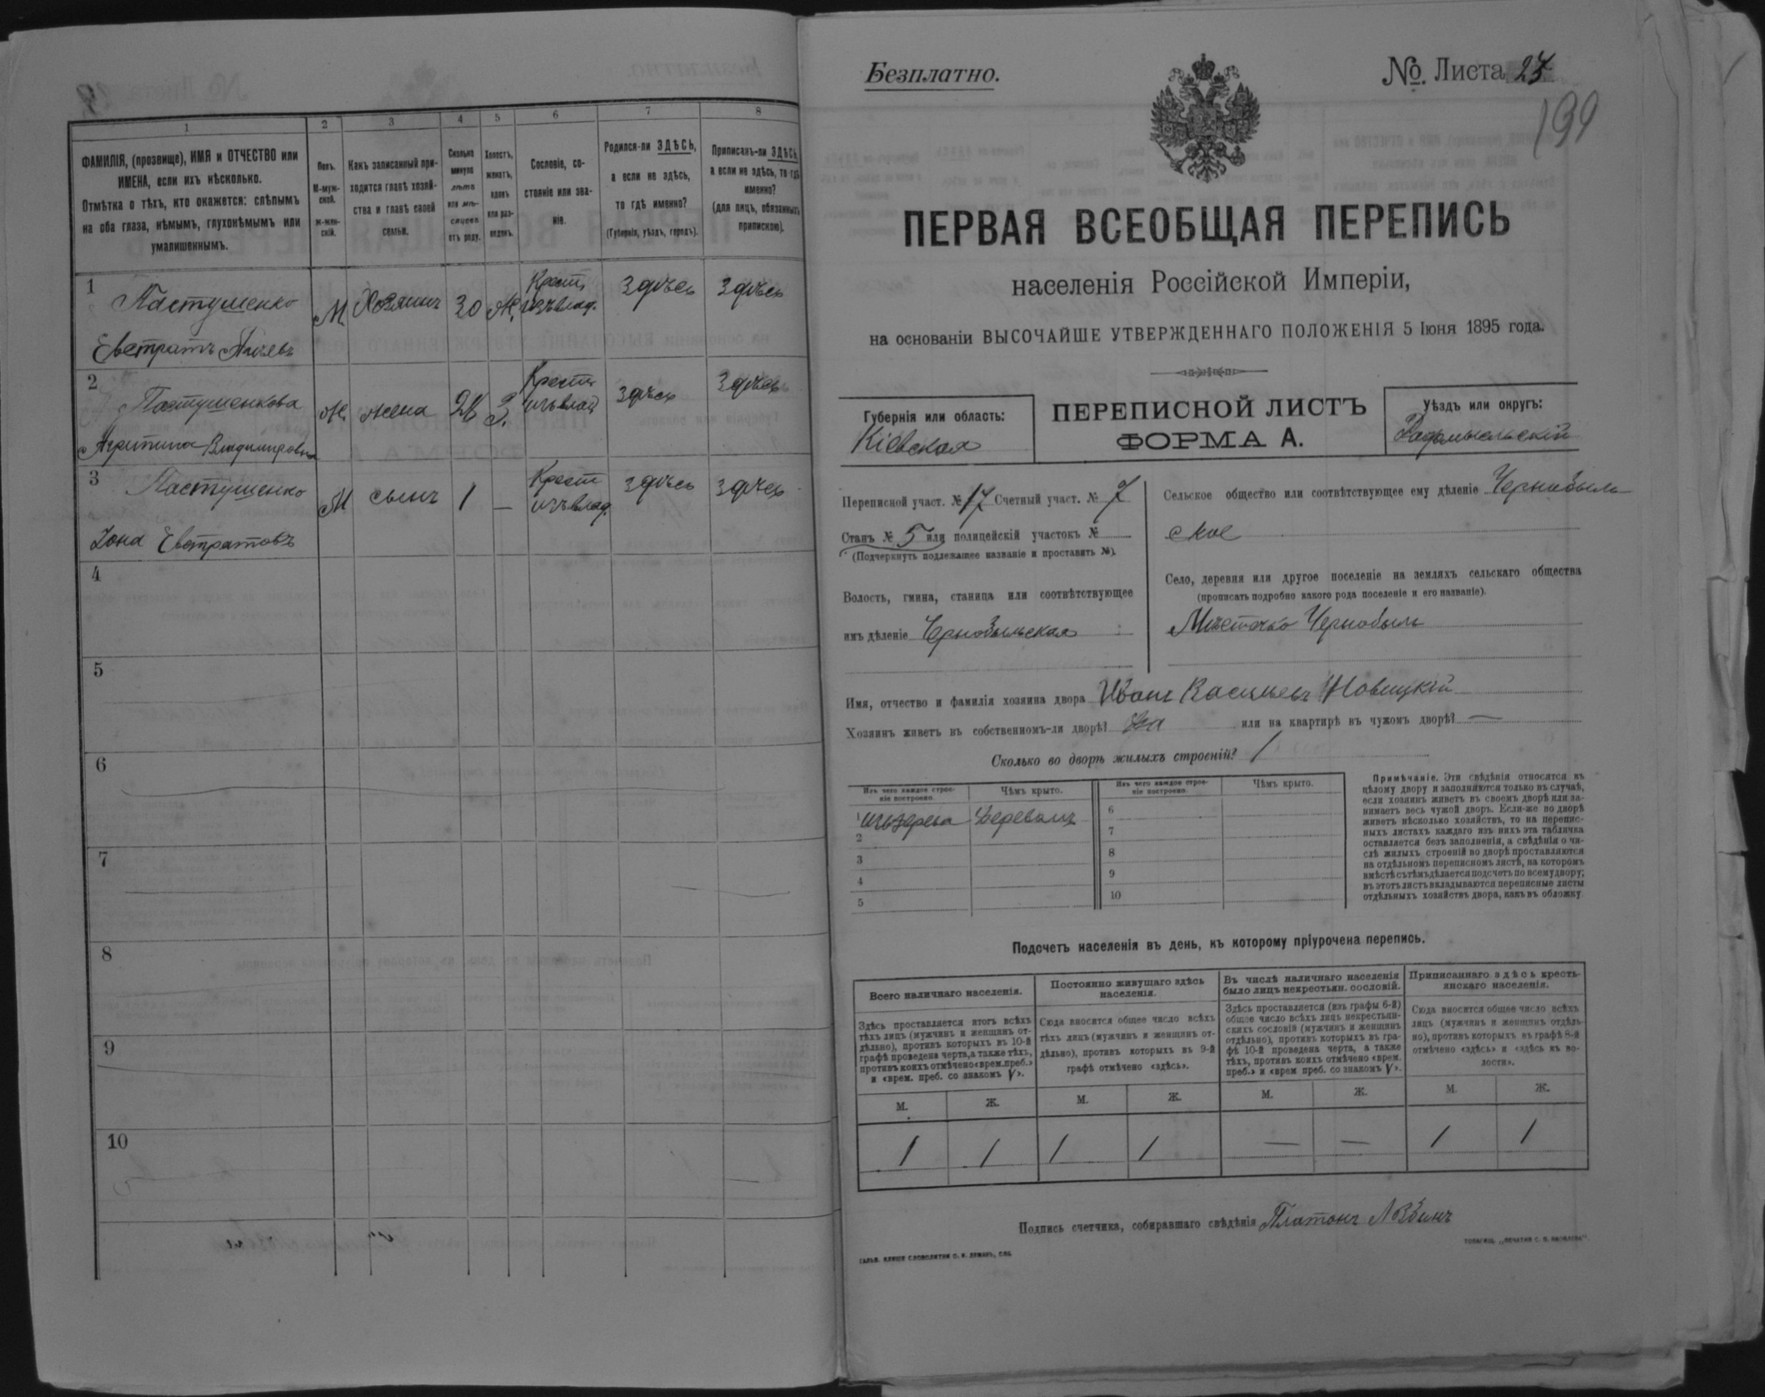 1
2
3
4
5
6
7
8
ФАМИЛІЯ, (прозвище), ИМЯ и ОТЧЕСТВО или
ИМЕНА, если ихъ нѣсколько.
Отмѣтка о тѣхъ, кто окажется: слѣпымъ
на оба глаза, нѣмымъ, глухонѣмымъ или
умалишеннымъ.
Полъ.
М-муж-
ской.
Ж-жен-
скій.
Какъ записанный при-
ходится главѣ хозяй-
ства и главѣ своей
семьи.
Сколько
минуло
лѣтъ
или мѣ-
сяцевъ
отъ роду.
Холостъ,
женатъ,
вдовъ
или раз-
веденъ.
Сословіе, со-
стояніе или зва-
ніе.
Родился-ли ЗДѢСЬ,
а если не здѣсь,
то гдѣ именно?
(Губернія, уѣздъ, городъ).
Приписанъ-ли ЗДѢСЬ,
а если не здѣсь, то гдѣ
именно?
(для лицъ, обязанныхъ
припискою).
1
Пастушенко
Евстратъ
М
Хозяинъ
30
Ж.
Крест.
изъ влад.
Здѣсь
Здѣсь
2
Пастушенкова
Агрипина Владимировна
Ж.
жена
З.
Крест.
изъ влад
здѣсь
здѣсь
3
Пастушенко
Іона Евстратовъ
М
сынъ
1
—
Крест
изъ влад.
здѣсь
здѣсь
4
5
6
7
8
9
10
Безплатно.
№ Листа 27
199
ПЕРВАЯ ВСЕОБЩАЯ ПЕРЕПИСЬ
населенія Россійской Имперіи,
на основаніи ВЫСОЧАЙШЕ УТВЕРЖДЕННАГО ПОЛОЖЕНІЯ 5 Іюня 1895 года.
Губернія или область:
Кіевская
ПЕРЕПИСНОЙ ЛИСТЪ
ФОРМА А.
Уѣздъ или округъ:
Радомысльскій
Переписной участ. № 17 Счетный участ. № 7
Станъ № 5 или полицейскій участокъ №
(Подчеркнуть подлежащее названіе и проставить №).
Волость, гмина, станица или соотвѣтствующее
имъ дѣленіе Чернобыльская
Сельское общество или соотвѣтствующее ему дѣленіе Чернобыль-
ское
Село, деревня или другое поселеніе на земляхъ сельскаго общества
(прописать подробно какого рода поселеніе и его названіе).
Мѣстечко Чернобыль
Имя, отчество и фамилія хозяина двора Иванъ Васильевъ Новицкій
Хозяинъ живетъ въ собственномъ-ли дворѣ? Да или на квартирѣ въ чужомъ дворѣ? —
Сколько во дворѣ жилыхъ строеній? 1
Изъ чего каждое строе-
ніе построено.
Чѣмъ крыто.
Изъ чего каждое строе-
ніе построено.
Чѣмъ крыто.
1 изъ дерева Деревомъ
2
3
4
5
6
7
8
9
10
Примѣчаніе. Эти свѣдѣнія относятся къ
цѣлому двору и заполняются только въ случаѣ,
если хозяинъ живетъ въ своемъ дворѣ или за-
нимаетъ весь чужой дворъ. Если-же во дворѣ
живетъ нѣсколько хозяйствъ, то на перепис-
ныхъ листахъ каждаго изъ нихъ эта табличка
оставляется безъ заполненія, а свѣдѣнія о чи-
слѣ жилыхъ строеній во дворѣ проставляются
на отдѣльномъ переписномъ листѣ, на которомъ
вмѣстѣ съ тѣмъ дѣлается подсчетъ по всему двору;
въ этотъ листъ вкладываются переписные листы
отдѣльныхъ хозяйствъ двора, какъ въ обложку.
Подсчетъ населенія въ день, къ которому пріурочена перепись.
Всего наличнаго населенія.
Постоянно живущаго здѣсь
населенія.
Въ числѣ наличнаго населенія
было лицъ некрестьян. сословій.
Приписаннаго здѣсь кресть-
янскаго населенія.
Здѣсь проставляется итогъ всѣхъ
тѣхъ лицъ (мужчинъ и женщинъ от-
дѣльно), противъ которыхъ въ 10-й
графѣ проведена черта, а также тѣхъ,
противъ коихъ отмѣчено «врем. преб.»
и «врем. преб. со знакомъ V».
Сюда вносится общее число всѣхъ
тѣхъ лицъ (мужчинъ и женщинъ от-
дѣльно), противъ которыхъ въ 9-й
графѣ отмѣчено «здѣсь».
Здѣсь проставляется (изъ графы 6-й)
общее число всѣхъ лицъ некрестьян-
скихъ сословій (мужчинъ и женщинъ
отдѣльно), противъ которыхъ въ гра-
фѣ 10-й проведена черта, а также
тѣхъ, противъ коихъ отмѣчено «врем.
преб.» и «врем преб. со знакомъ V».
Сюда вносится общее число всѣхъ
лицъ (мужчинъ и женщинъ отдѣль-
но), противъ которыхъ въ графѣ 8-й
отмѣчено «здѣсь» и «здѣсь въ во-
лости».
М. Ж. М. Ж. М. Ж. М. Ж.
1 1 1 1 — — 1 1
Подпись счетчика, собиравшаго свѣдѣнія Платонъ